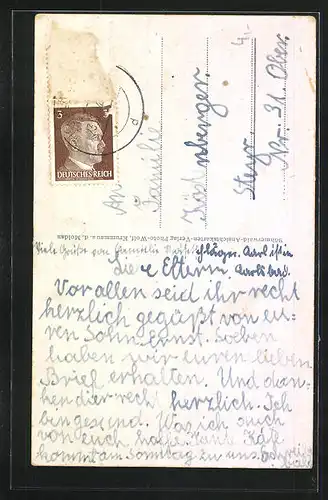 3
DEUTSCHES REICH
d
An
Familie
berger.
Steyr
Nr. 31 Ober.
Böhmerwald-Ansichtskarten-Verlag Photo-Wolf, Krummau a. d. Moldau
Viele Grüße von Familie Karl ist in
Liebe Eltern. Karlsbad.
Vor allen seid ihr recht
herzlich gegüßt von eu-
ren Sohn Ernst. Soeben
haben wir euren lieben
Brief erhalten. Und dan-
ke dir recht herzlich. Ich
bin gesund. Was ich auch
von euch hoffe. Tante
kommt am Sonntag zu uns.